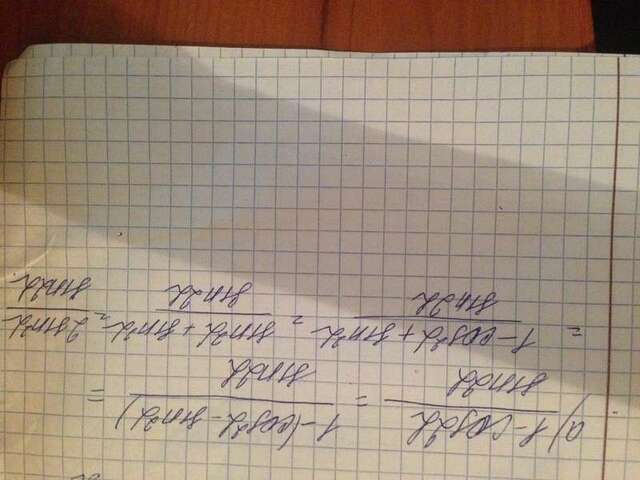 a) (1-cos2α)/(sin2α) = (1-(cos²α-sin²α))/(sin2α) =
= (1-cos²α+sin²α)/(sin2α) = (sin²α+sin²α)/(sin2α) = (2sin²α)/(sin2α)